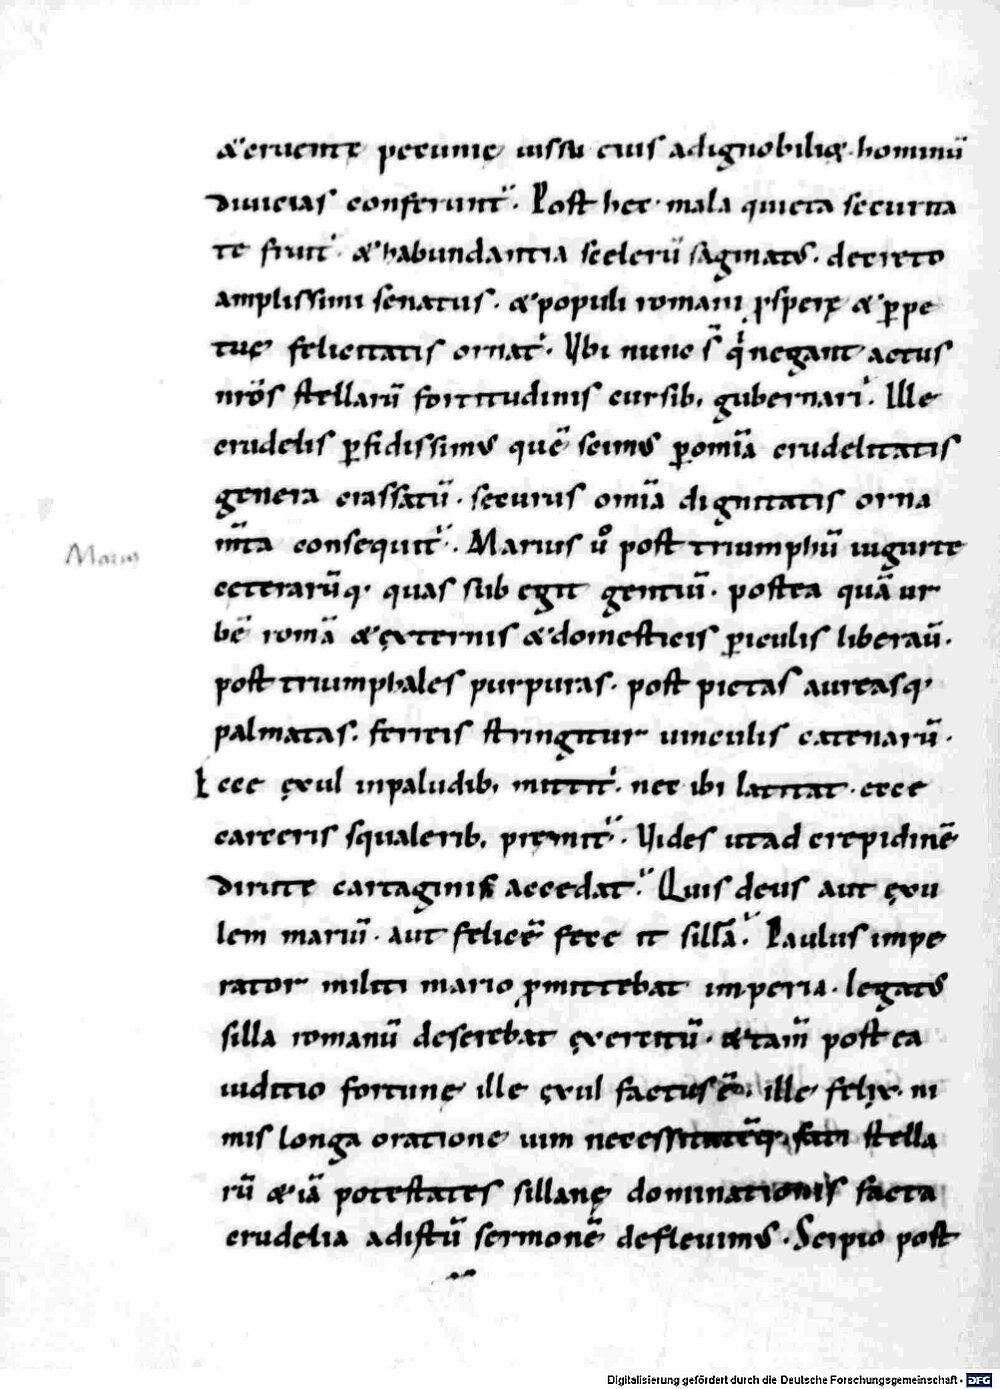 & cruentę pecunię iussu eius ad ignobiliū hominū
diuicias conferunt̃. Post hec mala quieta securita
te fruit̃. & habundantia scelerū saginatus. decreto
amplissimi senatus. & populi romani ꝓsperę & ꝑpe
tuę felicitatis ornat̃. Vbi nunc s̄ qͥ negant actus
nrōs stellarū fortitudinis cursib; gubernari. Ille
crudelis ꝑfidissimus quē scimus ꝑ om̄ia crudelitatis
genera crassatū. securus om̄ia dignitatis orna
m̄ta consequit̃. Marius ů post triumphū iugurte
ceterarūq; quas subegit gentiū. postea quā ur
bē romā & externis & domesticis ꝑiculis liberau̅.
post triumphales purpuras. post pictas aureasq;
palmatas. ferreis stringitur uinculis catenarū.
Ecce exul in paludib; mittit̃. nec ibi latitat. ecce
carceris squalerib; premit̃. Vides ut ad crepidinē
dirutę cartaginis accedat. Quis deus aut exu
lem mariū. aut felicē fecit sillā. Paulus impe
rator militi mario ꝓmittebat imperia. legatus
silla romanū deserebat exercitū. & tam̄ post ea
iuditio fortunę ille exul factus ē. ille felix. ni
mis longa oratione uim necessitatēq; stella
rū & iā potestates sillanę dominationis facta
crudelia ad istū sermonē defleuimus. Scipio post
Marius
Digitalisierung gefördert durch die Deutsche Forschungsgemeinschaft - DFG